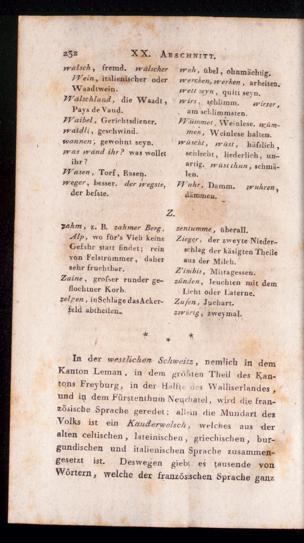 232 XX. Abschnitt.
walsch, fremd. walscher
Wein, italienischer oder
Waadtwein.
Walschland, die Waadt,
Pays de Vaud.
Waibel, Gerichtsdiener.
waidli, geschwind.
wannen, gewohnt seyn.
was wand ihr? was wollet
ihr?
Wasen, Torf, Rasen.
weger, besser. der wegste,
der beste.
weh, übel, ohnmächtig.
werchen, werken, arbeiten.
wett seyn, quitt seyn.
wirs, schlimm. wirser,
am schlimmsten.
Wümmet, Weinlese. wüm-
men, Weinlese halten.
wüscht, wüst, häſslich,
schlecht, liederlich, un-
artig. wüschthun, schmä-
len.
Wuhr, Damm. wuhren,
dämmen.
Z.
zahm, z. B. zahmer Berg,
Alp, wo für's Vieh keine
Gefahr statt findet; rein
von Felstrümmer, daher
sehr fruchtbar.
Zaine, groſser runder ge-
flochtner Korb.
zelgen, in Schläge das Acker-
feld abtheilen.
zentumme, überall.
Zieger, der zweyte Nieder-
schlag der käsigten Theile
aus der Milch.
Z'imbis, Mittagessen.
zünden, leuchten mit dem
Licht oder Laterne.
Zufen, Juchart.
zwürig, zweymal.
* * *
In der westlichen Schweitz, nemlich in dem
Kanton Leman, in dem gröſsten Theil des Kan-
tons Freyburg, in der Hälfte des Walliserlandes,
und in dem Fürstenthum Neuchatel, wird die fran-
zösische Sprache geredet; allein die Mundart des
Volks ist ein Kauderwelsch, welches aus der
alten celtischen, lateinischen, griechischen, bur-
gundischen und italienischen Sprache zusammen-
gesetzt ist. Deswegen giebt es tausende von
Wörtern, welche der französischen Sprache ganz